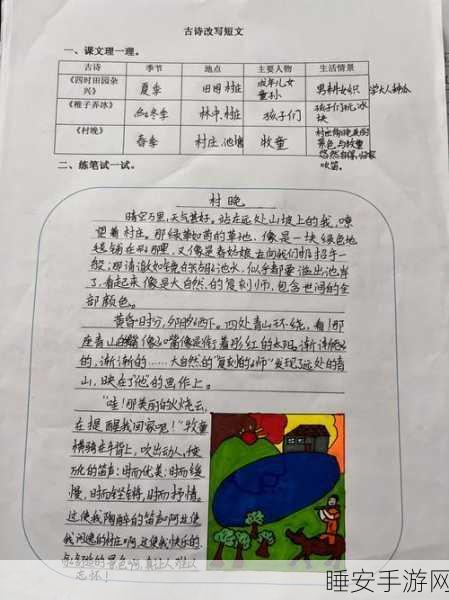 古诗改写短文
一、课文理一理。
古诗 季节 地点 主要人物 生活情景
《四时田园杂兴》 夏季 田园村庄 成年儿女 童孙 男耕女织 学大人种瓜
《稚子弄冰》 冬季 林中、村庄 孩子们 孩子们玩冰块
《村晚》 春季 村庄、池塘 牧童 村庄傍晚美的景色,与牧童悠然自得,归家吹笛。
二、练笔试一试。
村晚
晴空万里,天气甚好。站在远处山坡上的我,嘹
望着村庄。那绿草如茵的草地,像是一块绿色地
毯铺在那里,又像是春姑娘去向我们招招手一
般;那清澈如镜的池水,似乎都要溢出池岸
了,看起来像是大自然的复刻师,包含世间的全
部颜色。
黄昏时分,夕阳西下。四处青山环绕。看!那
座青山的嘴像是衔着彤红的太阳。渐渐的
的,渐渐的……大自然的"复刻师"发现了远处的青
山,映在了"他"的画作上。
"哇!那美丽的火烧云,
在提醒我回家吧!"牧童
横骑在牛背上,吹出动人、
变化的笛声:时而优美;时而缓
慢,时而铿锵,时而抒情。
这使我陶醉的笛声啊
我闲逸的村庄啊,这使我快乐的
景色啊,真让人难以
忘怀!
睡安手游网